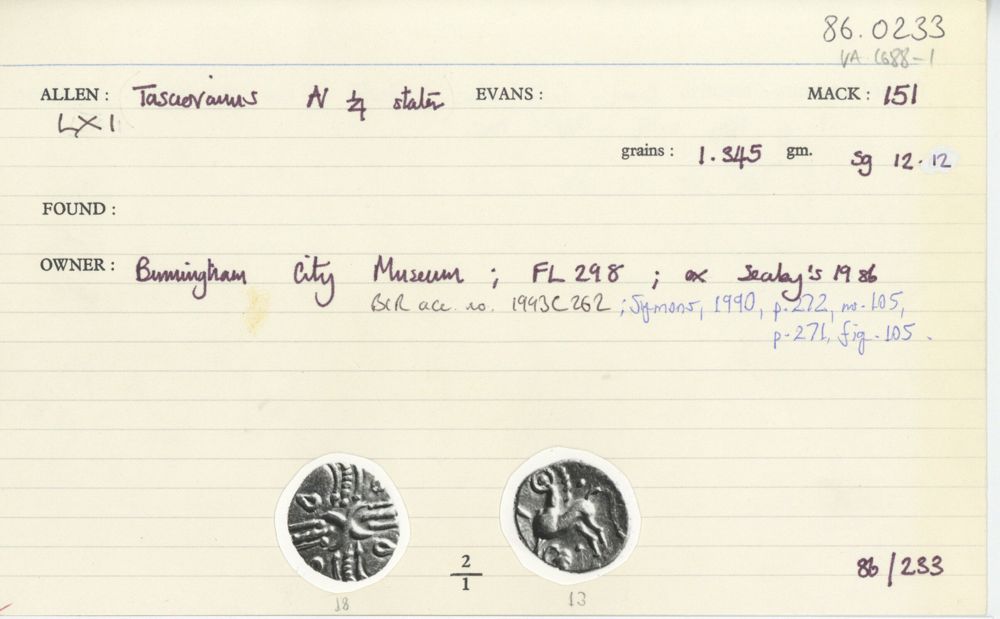 86.0233
VA 1688-1
ALLEN : Tasciovanus AV 1/4 stater EVANS : MACK : 151
LX 1
grains : 1.345 gm. sg 12.12
FOUND :
OWNER : Birmingham City Museum ; FL 298 ; ex Seaby's 1986
BCR acc. no. 1993C262 ; Symons, 1990, p.272, no.105,
p.271, fig.105.
2
1
86/233
18 13